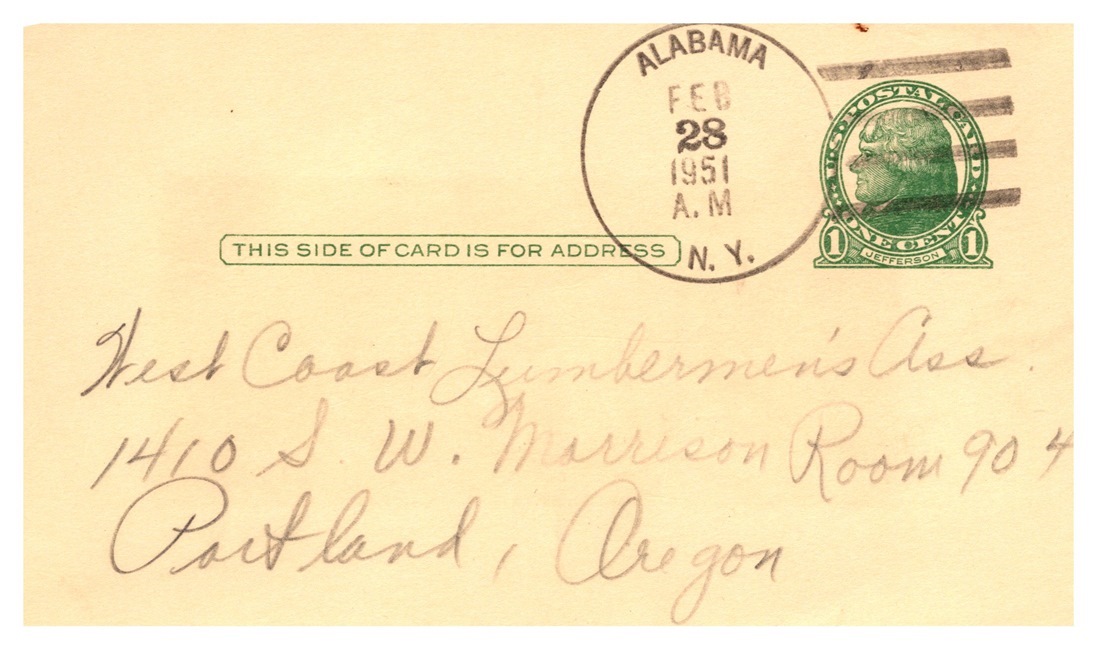 ALABAMA
FEB
28
1951
A.M
N.Y.
U.S. POSTAL CARD
ONE CENT
1 JEFFERSON 1
THIS SIDE OF CARD IS FOR ADDRESS
West Coast Lumbermen's Ass.
1410 S. W. Morrison Room 904
Portland, Oregon